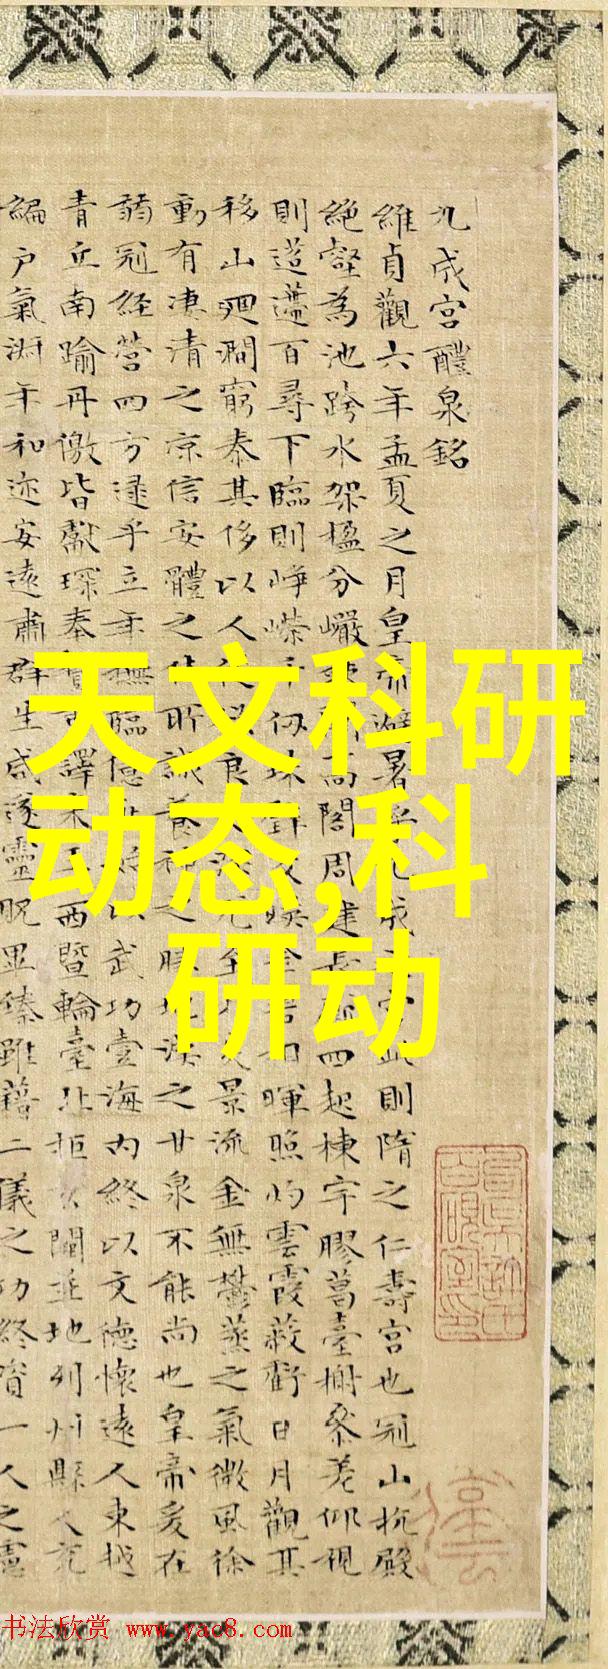 九成宮醴泉銘
維貞觀六年孟夏之月皇帝避暑乎九成之宮此則隋之仁壽宮也冠山抗殿
絕壑為池跨水架楹分巖竦闕高閣周建長廊四起棟宇膠葛臺榭參差仰視
則迢遰百尋下臨則崢嶸千仞珠璧交暎金碧相暉照灼雲霞蔽虧日月觀其
移山廻澗窮泰其侈以人從欲良足深尤至於炎景流金無鬱蒸之氣微風徐
動有凄清之凉信安體之佳所誠養神之勝地漢之甘泉不能尚也皇帝爰在
弱冠經營四方逮乎立年撫臨億兆始以武功壹海內終以文德懷遠人東越
青丘南踰丹儌皆獻琛奉贄重譯來王西暨輪臺北拒玄闕並地列州縣人充
編戶氣淑年和迩安遠肅群生咸遂靈貺畢臻雖藉二儀之功終資一人之慮
天文科研
动态,科
研动
书法欣赏 www.yac8.com